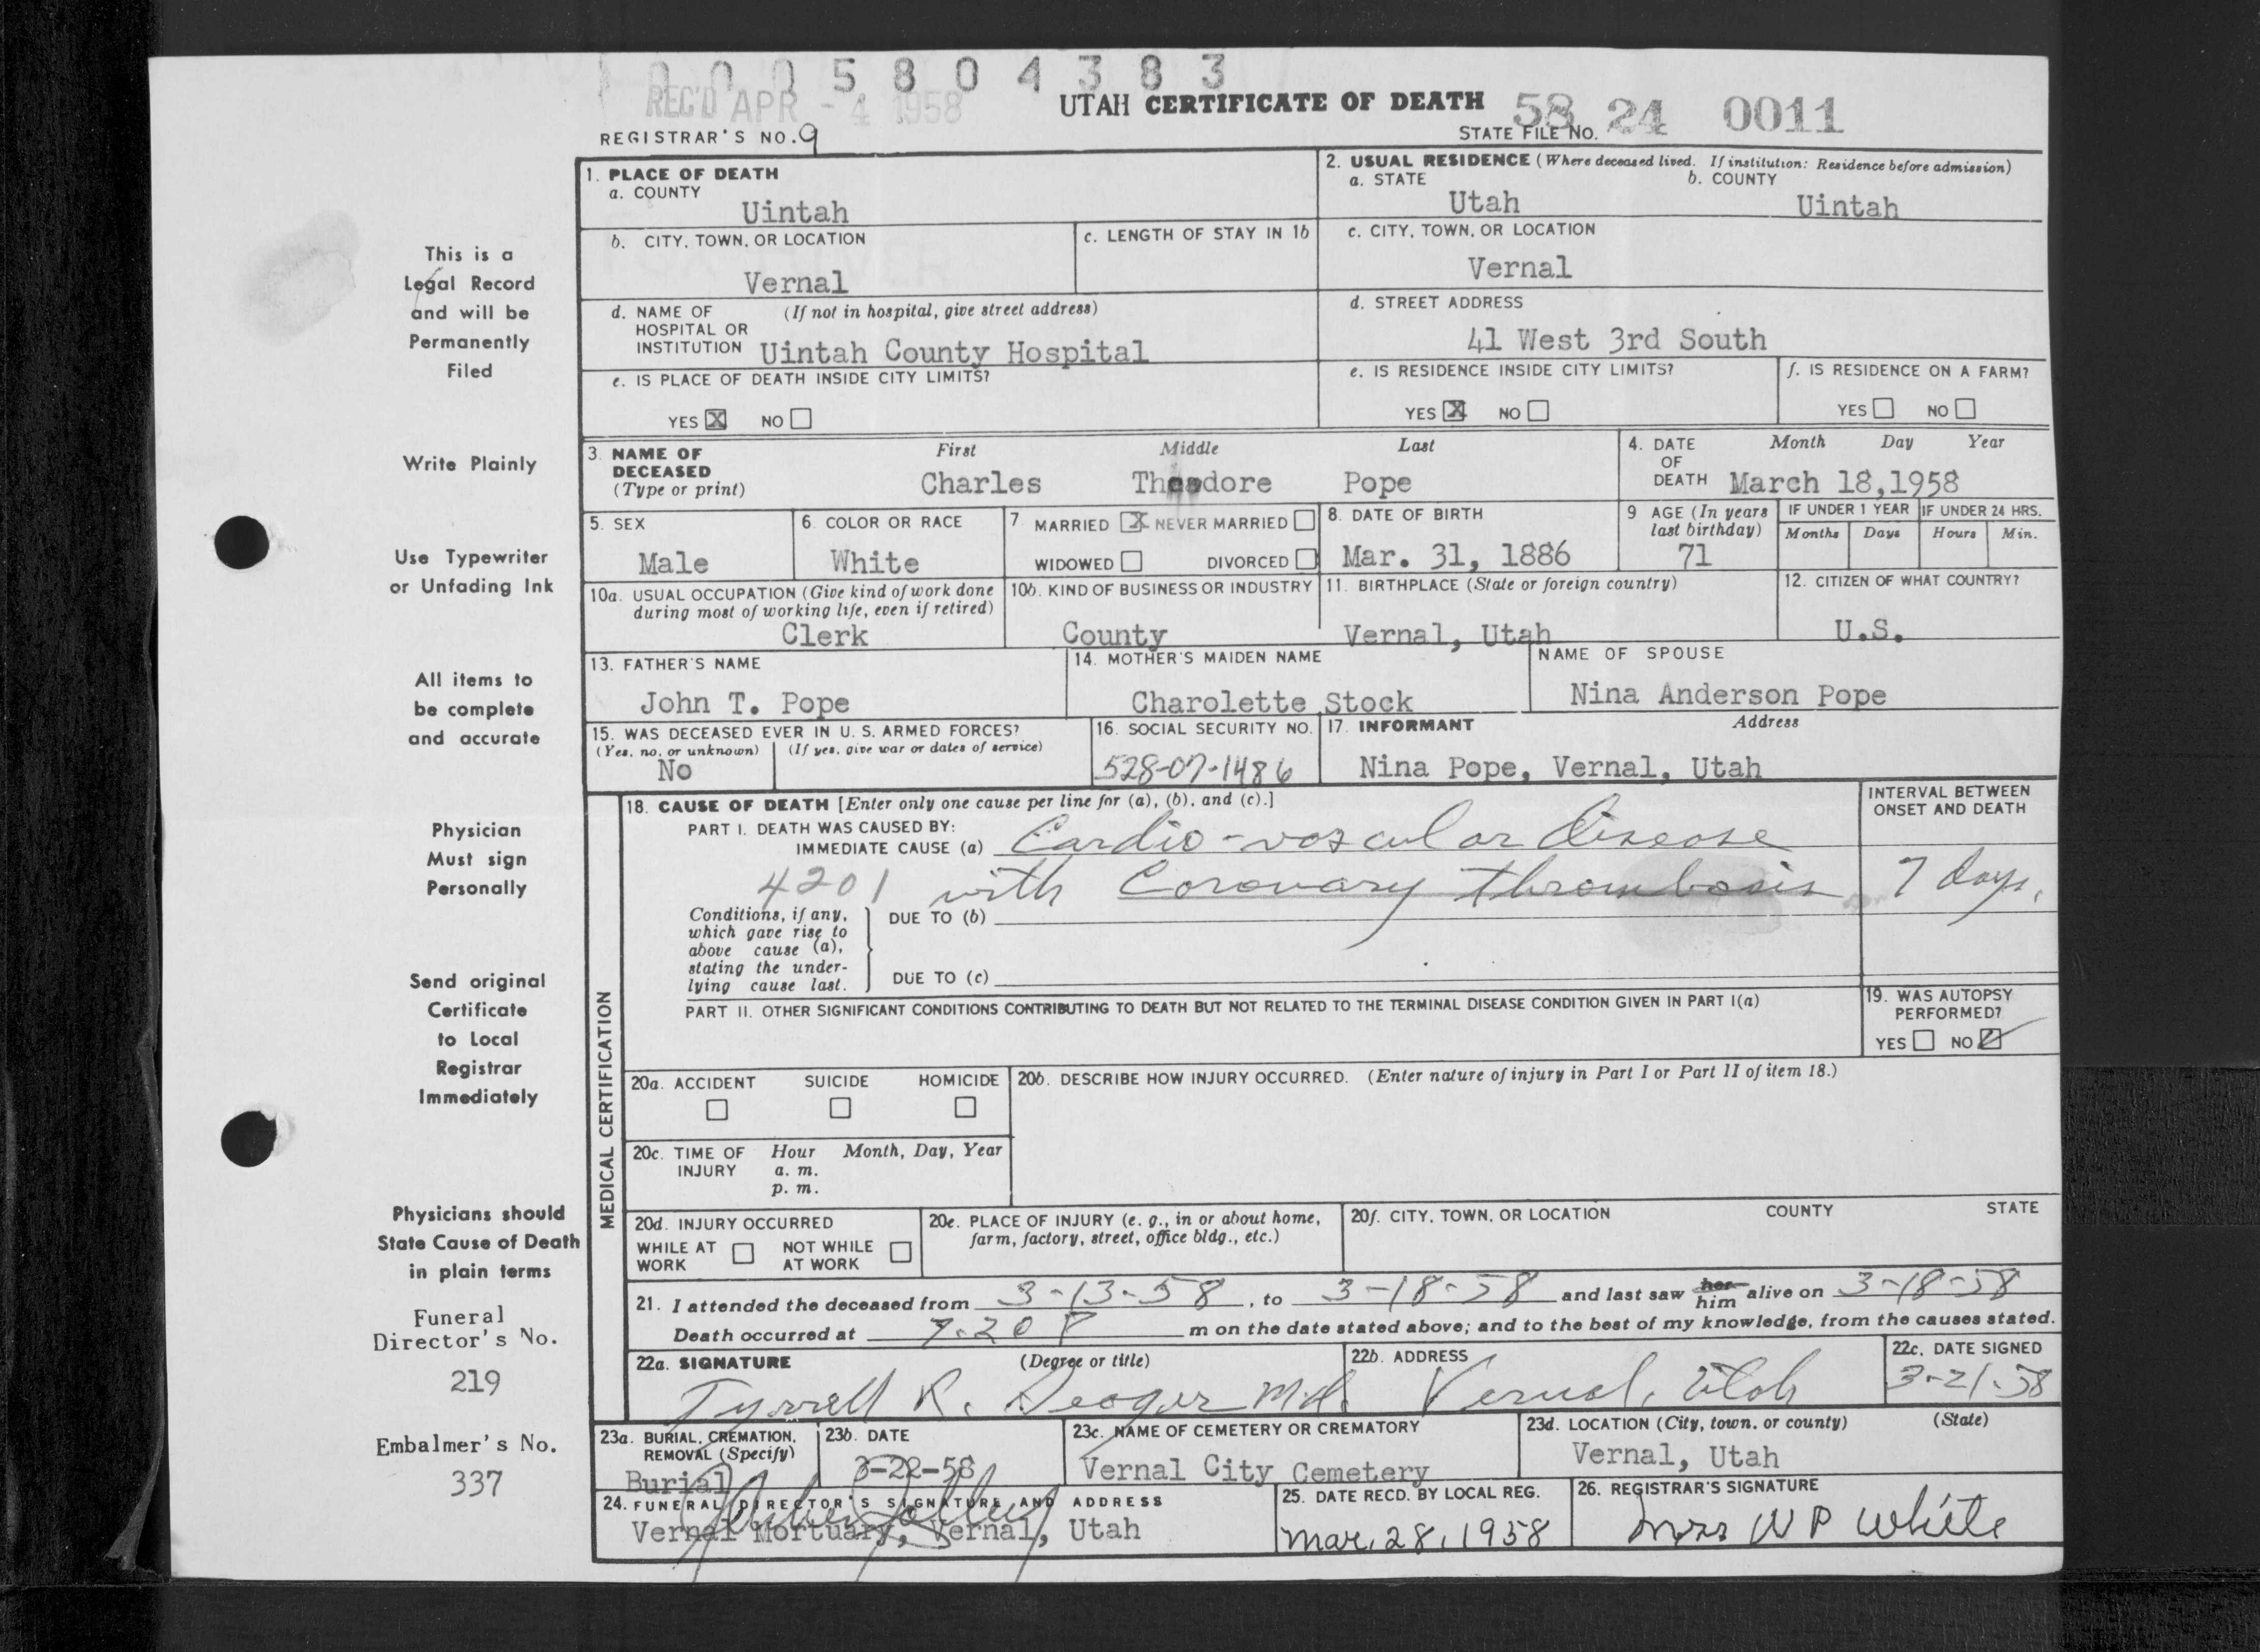 0005804383
REC'D APR - 4 1958
UTAH CERTIFICATE OF DEATH 58 24 0011
REGISTRAR'S NO. 9 STATE FILE NO.
1. PLACE OF DEATH
a. COUNTY
Uintah
2. USUAL RESIDENCE (Where deceased lived. If institution: Residence before admission)
a. STATE b. COUNTY
Utah Uintah
b. CITY, TOWN, OR LOCATION c. LENGTH OF STAY IN 1b
Vernal
c. CITY, TOWN, OR LOCATION
Vernal
d. NAME OF HOSPITAL OR INSTITUTION (If not in hospital, give street address)
Uintah County Hospital
d. STREET ADDRESS
41 West 3rd South
e. IS PLACE OF DEATH INSIDE CITY LIMITS?
YES X NO
e. IS RESIDENCE INSIDE CITY LIMITS?
YES X NO
f. IS RESIDENCE ON A FARM?
YES NO
3. NAME OF DECEASED (Type or print)
First Middle Last
Charles Theodore Pope
4. DATE OF DEATH Month Day Year
March 18,1958
5. SEX
Male
6. COLOR OR RACE
White
7. MARRIED X NEVER MARRIED
WIDOWED DIVORCED
8. DATE OF BIRTH
Mar. 31, 1886
9 AGE (In years last birthday)
71
IF UNDER 1 YEAR IF UNDER 24 HRS.
Months Days Hours Min.
10a. USUAL OCCUPATION (Give kind of work done during most of working life, even if retired)
Clerk
10b. KIND OF BUSINESS OR INDUSTRY
County
11. BIRTHPLACE (State or foreign country)
Vernal, Utah
12. CITIZEN OF WHAT COUNTRY?
U.S.
13. FATHER'S NAME
John T. Pope
14. MOTHER'S MAIDEN NAME
Charolette Stock
NAME OF SPOUSE
Nina Anderson Pope
15. WAS DECEASED EVER IN U. S. ARMED FORCES?
(Yes, no, or unknown) (If yes, give war or dates of service)
No
16. SOCIAL SECURITY NO.
528-07-1486
17. INFORMANT Address
Nina Pope, Vernal, Utah
MEDICAL CERTIFICATION
18. CAUSE OF DEATH [Enter only one cause per line for (a), (b), and (c).]
INTERVAL BETWEEN ONSET AND DEATH
PART I. DEATH WAS CAUSED BY:
IMMEDIATE CAUSE (a) Cardio-vascular disease
4201 with Coronary thrombosis 7 days.
Conditions, if any, which gave rise to above cause (a), stating the underlying cause last.
DUE TO (b)
DUE TO (c)
PART II. OTHER SIGNIFICANT CONDITIONS CONTRIBUTING TO DEATH BUT NOT RELATED TO THE TERMINAL DISEASE CONDITION GIVEN IN PART I(a)
19. WAS AUTOPSY PERFORMED?
YES NO
20a. ACCIDENT SUICIDE HOMICIDE
20b. DESCRIBE HOW INJURY OCCURRED. (Enter nature of injury in Part I or Part II of item 18.)
20c. TIME OF INJURY Hour Month, Day, Year
a. m.
p. m.
20d. INJURY OCCURRED
WHILE AT WORK NOT WHILE AT WORK
20e. PLACE OF INJURY (e. g., in or about home, farm, factory, street, office bldg., etc.)
20f. CITY, TOWN, OR LOCATION COUNTY STATE
21. I attended the deceased from 3-13-58, to 3-18-58 and last saw her him alive on 3-18-58
Death occurred at 7:20 P m on the date stated above; and to the best of my knowledge, from the causes stated.
22a. SIGNATURE (Degree or title)
Tyrrell R. Seager M.d.
22b. ADDRESS
Vernal, Utah
22c. DATE SIGNED
3-21-58
23a. BURIAL, CREMATION, REMOVAL (Specify)
Burial
23b. DATE
3-22-58
23c. NAME OF CEMETERY OR CREMATORY
Vernal City Cemetery
23d. LOCATION (City, town, or county) (State)
Vernal, Utah
24. FUNERAL DIRECTOR'S SIGNATURE AND ADDRESS
Vernal Mortuary, Vernal, Utah
25. DATE RECD. BY LOCAL REG.
Mar. 28, 1958
26. REGISTRAR'S SIGNATURE
Mrs W P White
This is a
Legal Record
and will be
Permanently
Filed
Write Plainly
Use Typewriter
or Unfading Ink
All items to
be complete
and accurate
Physician
Must sign
Personally
Send original
Certificate
to Local
Registrar
Immediately
Physicians should
State Cause of Death
in plain terms
Funeral
Director's No.
219
Embalmer's No.
337